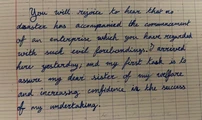 You will rejoice to hear that no
disaster has accompanied the commencement
of an enterprise which you have regarded
with such evil forebodings. I arrived
here yesterday, and my first task is to
assure my dear sister of my welfare
and increasing confidence in the success
of my undertaking.